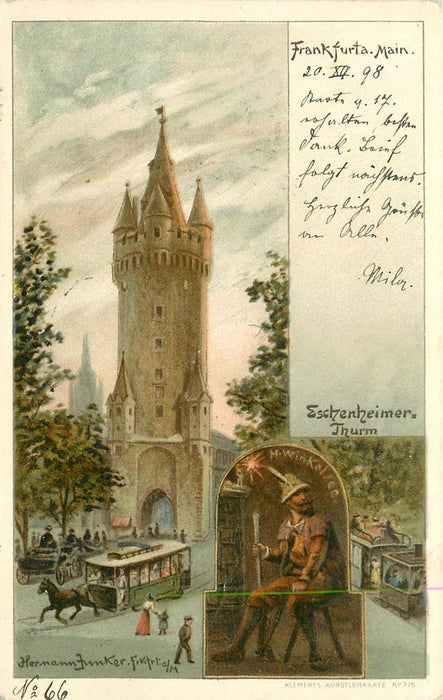 Frankfurt a. Main.
20. XII. 98
Karte v. 17.
erhalten besten
Dank. Brief
folgt nächstens.
Herzliche Grüße
an Alle.
Mila.
Eschenheimer-
Thurm
H. Winkelsee
Hermann Junker. Frkfrt a/M
KLEMENTS KÜNSTLERKARTE No 376.
No 66